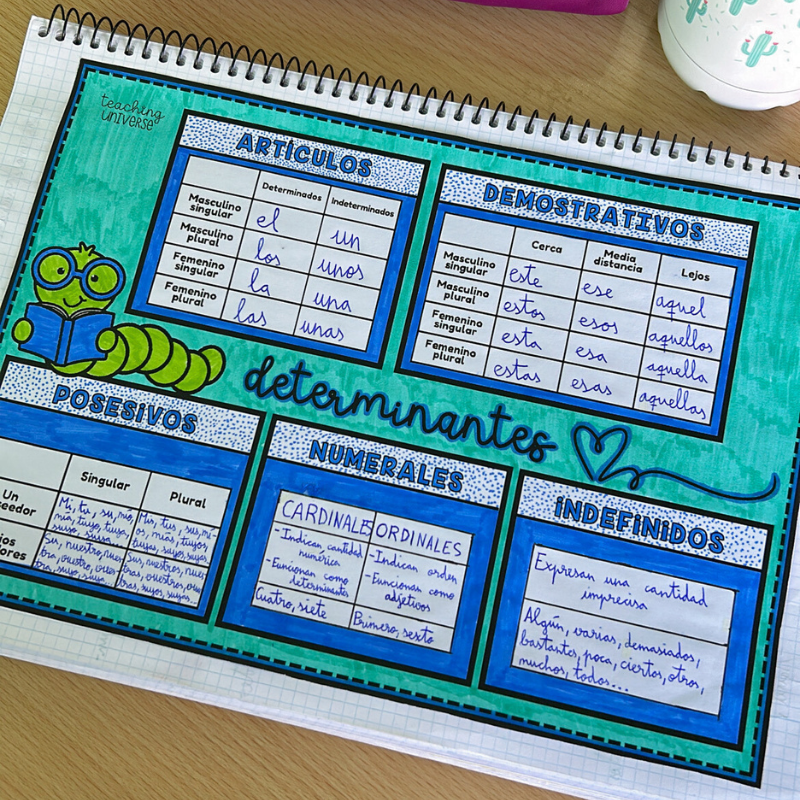 teaching
UNIVERSE
ARTÍCULOS
Determinados Indeterminados
Masculino singular el un
Masculino plural los unos
Femenino singular la una
Femenino plural las unas
DEMOSTRATIVOS
Cerca Media distancia Lejos
Masculino singular este ese aquel
Masculino plural estos esos aquellos
Femenino singular esta esa aquella
Femenino plural estas esas aquellas
determinantes
POSESIVOS
Singular Plural
Un
seedor
Mi, tu, su, mío,
mía, tuyo, tuya,
suyo, suya
Mis, tus, sus, mí-
os, mías, tuyos,
tuyas, suyos, suyas
ios
dores
Su, nuestro, nues-
tra, vuestro, vues-
tra, suyo, suya...
Sus, nuestros, nues-
tras, vuestros, vues-
tras, suyos, suyas...
NUMERALES
CARDINALES ORDINALES
- Indican cantidad
numérica
- Funcionan como
determinantes
- Indican orden
- Funcionan como
adjetivos
Cuatro, siete
Primero, sexto
INDEFINIDOS
Expresan una cantidad
imprecisa
Algún, varias, demasiados,
bastantes, poca, ciertos, otros,
muchos, todos...